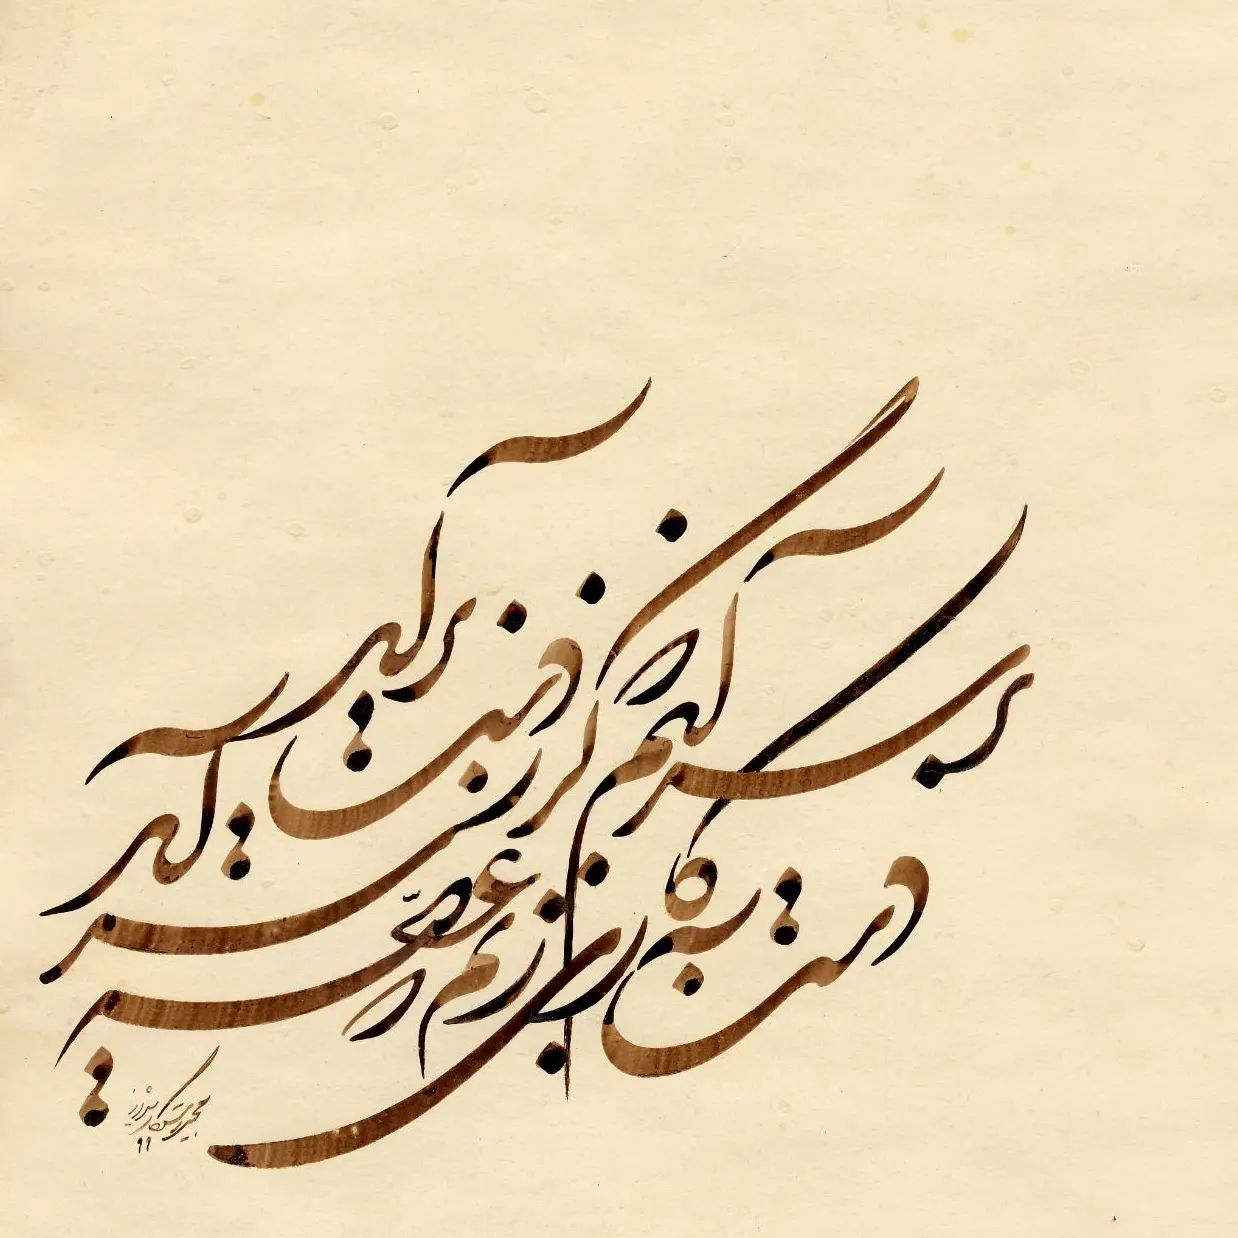 بر سر آنم که گر ز دست برآید
دست به کاری زنم که غصّه سر آید
۹۹